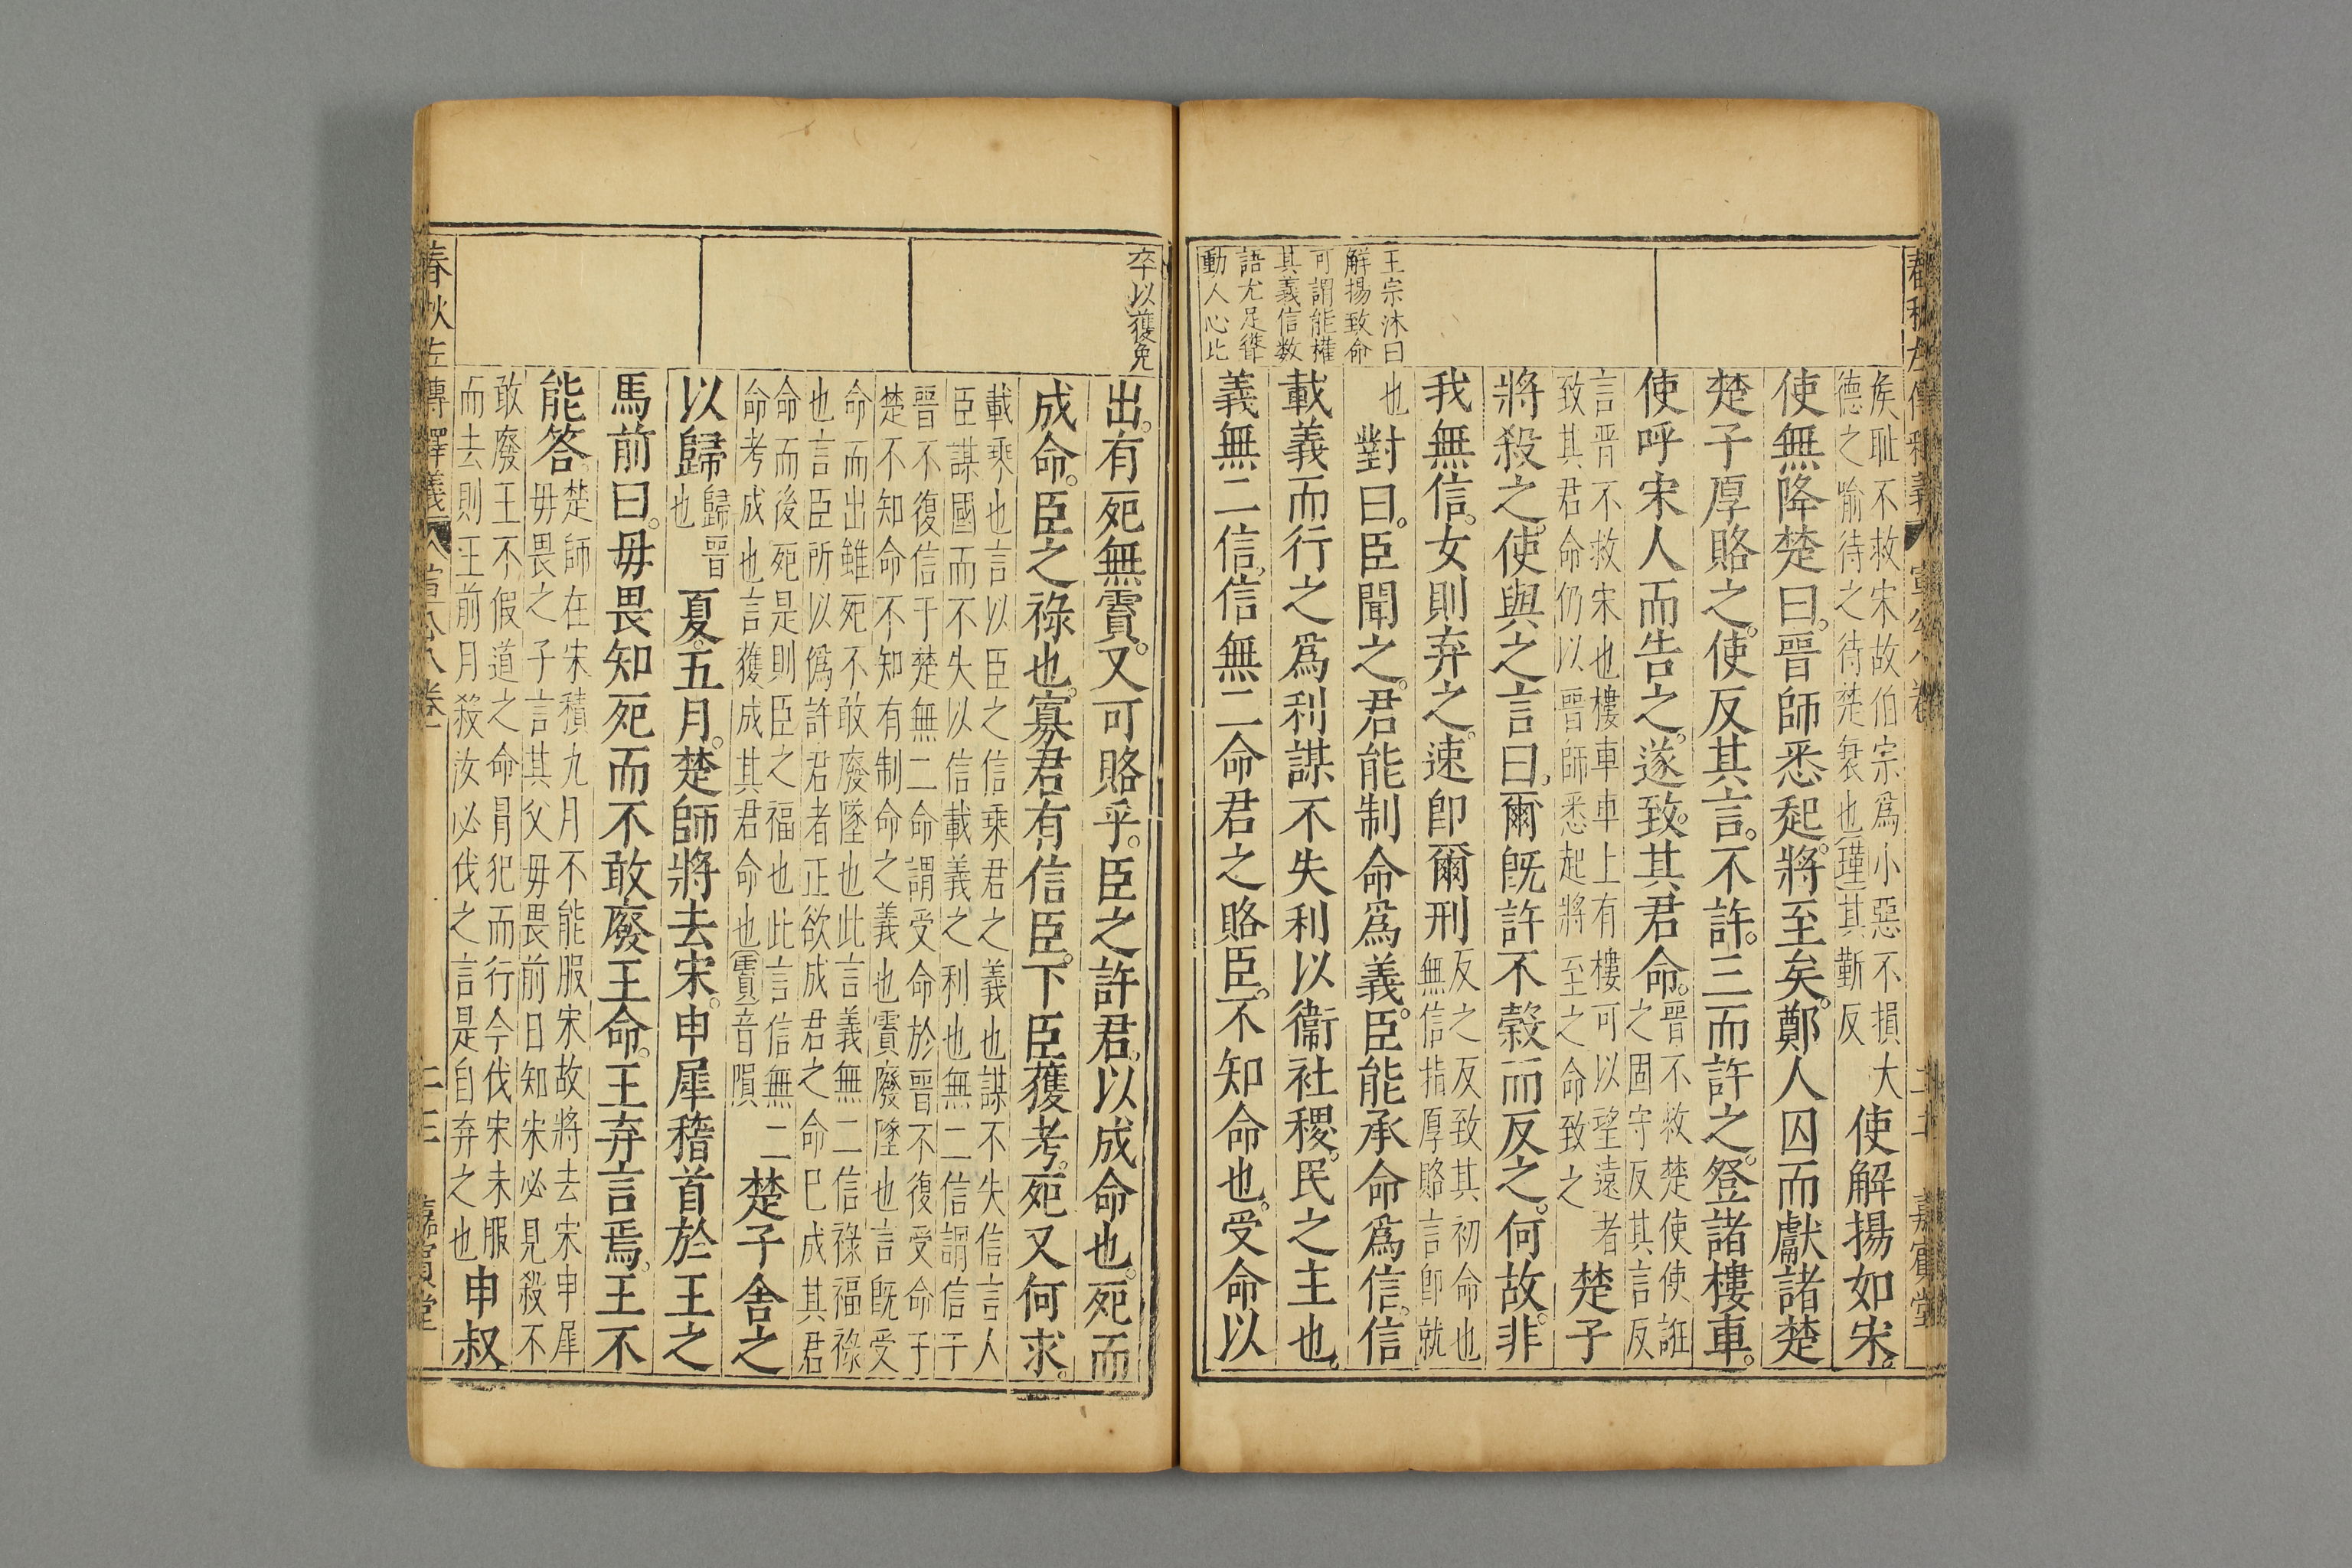 春秋左傳釋義 宣公八卷 二十二 嘉賓堂
王宗沐曰
解揚致命
可謂能權
其義信数
語尤足聳
動人心此
侯耻不救宋故伯宗爲小惡不損大
德之喻待之待楚衰也瑾其靳反
使解揚如宋。
使無降楚曰。晉師悉起。將至矣。鄭人囚而獻諸楚
楚子厚賂之。使反其言。不許。三而許之。登諸樓車。
使呼宋人而告之。遂致其君命。
晉不救楚使使誑
之固守反其言反
言晉不救宋也樓車車上有樓可以望遠者
致其君命仍以晉師悉起將至之命致之
楚子
將殺之。使與之言曰。爾旣許不穀而反之。何故。非
我無信。女則弃之。速卽爾刑
反之反致其初命也
無信指厚賂言卽就
也
對曰。臣聞之。君能制命爲義。臣能承命爲信。信
載義而行之爲利謀不失利以衞社稷。民之主也。
義無二信。信無二命君之賂臣。不知命也。受命以
卒以獲免
出。有死無霣。又可賂乎。臣之許君。以成命也。死而
成命。臣之祿也。寡君有信臣。下臣獲考。死又何求。
載乘也言以臣之信乘君之義也謀不失信言人
臣謀國而不失以信載義之利也無二信謂信于
晉不復信于楚無二命謂受命於晉不復受命于
楚不知命不知有制命之義也霣廢墜也言旣受
命而出雖死不敢廢墜也此言義無二信祿福祿
也言臣所以僞許君者正欲成君之命已成其君
命而後死是則臣之福也此言信無二
命考成也言獲成其君命也霣音隕
楚子舍之
以歸
歸晉
也
夏。五月。楚師將去宋。申犀稽首於王之
馬前曰。毋畏知死而不敢廢王命。王弃言焉。王不
能答。
楚師在宋積九月不能服宋故將去宋申犀
毋畏之子言其父毋畏前日知宋必見殺不
敢廢王不假道之命冐犯而行今伐宋未服
而去則王前月殺汝必伐之言是自弃之也
申叔
春秋左傳釋義 宣公八卷 二十三 嘉賓堂